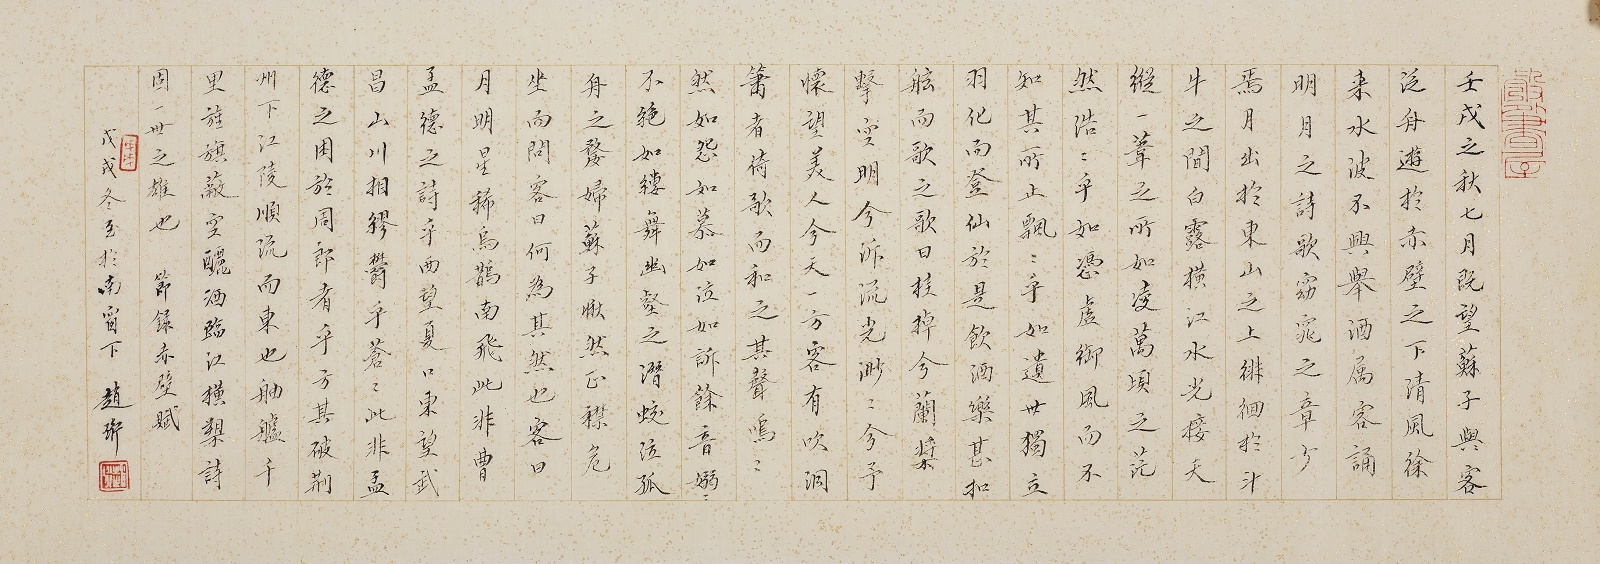 壬戌之秋七月既望蘇子與客
泛舟遊於赤壁之下清風徐
来水波不興舉酒属客誦
明月之詩歌窈窕之章少
焉月出於東山之上徘徊於斗
牛之間白露横江水光接天
縱一葦之所如凌萬頃之茫
然浩〻乎如憑虚御風而不
知其所止飄〻乎如遺世獨立
羽化而登仙於是飲酒樂甚扣
舷而歌之歌曰桂棹兮蘭槳
擊空明兮泝流光渺〻兮予
懷望美人兮天一方客有吹洞
簫者倚歌而和之其聲嗚〻
然如怨如慕如泣如訴餘音嫋〻
不絶如縷舞幽壑之潛蛟泣孤
舟之嫠婦蘇子愀然正襟危
坐而問客曰何為其然也客曰
月明星稀烏鵲南飛此非曹
孟德之詩乎西望夏口東望武
昌山川相繆鬱乎蒼〻此非孟
德之困於周郎者乎方其破荆
州下江陵順流而東也舳艫千
里旌旗蔽空釃酒臨江横槊詩
固一世之雄也 節録赤壁賦
戊戌冬至於南窗下 趙